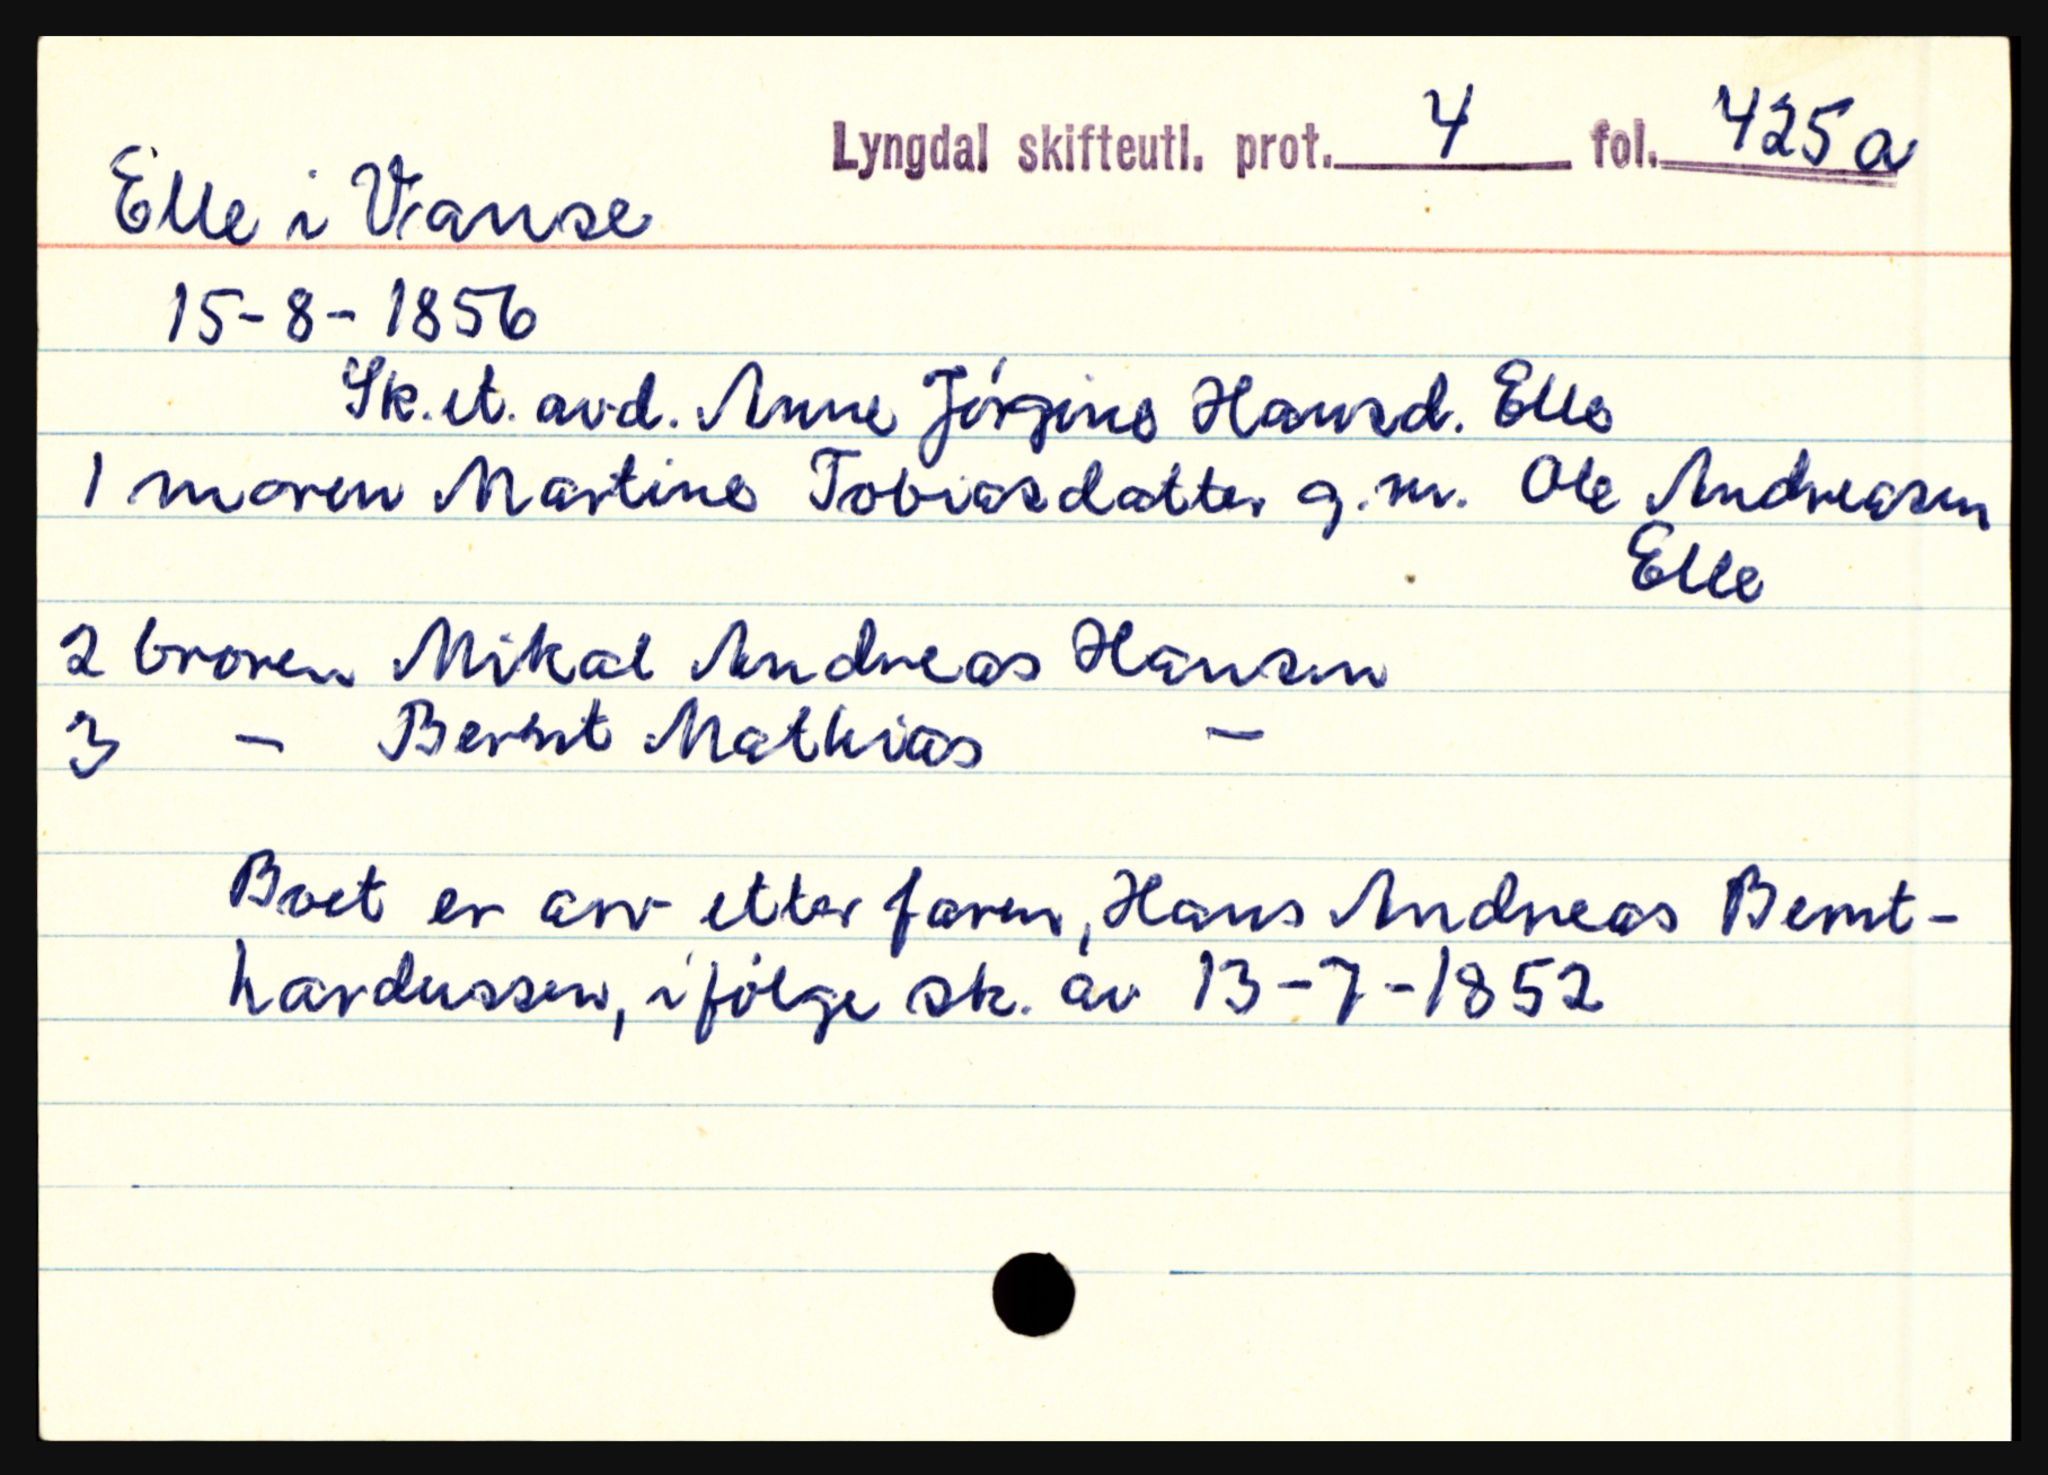 Lyngdal skifteutl. prot. 4 fol. 425a
Elle i Vanse
15-8-1856
Sk. et. avd. Anne Jørgine Hansd. Elle
1 moren Martine Tobiasdatter g. m. Ole Andreasen
Elle
2 broren Mikal Andreas Hansen
3 - Bernt Mathias -
Boet er arv etter faren, Hans Andreas Bernt-
hardussen, ifølge sk. av 13-7-1852